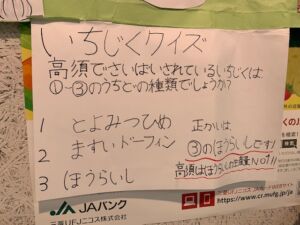 いちじくクイズ
高須でさいばいされているいちじくは
①~③のうちどの種類でしょうか?
1 とよみつひめ
2 ますい・ドーフィン
3 ほうらいし
正かいは、
③のほうらいしです!
高須はほうらいしの生産量NO1!!
JAバンク
三菱UFJニコス株式会社
https://www.cr.mufg.jp